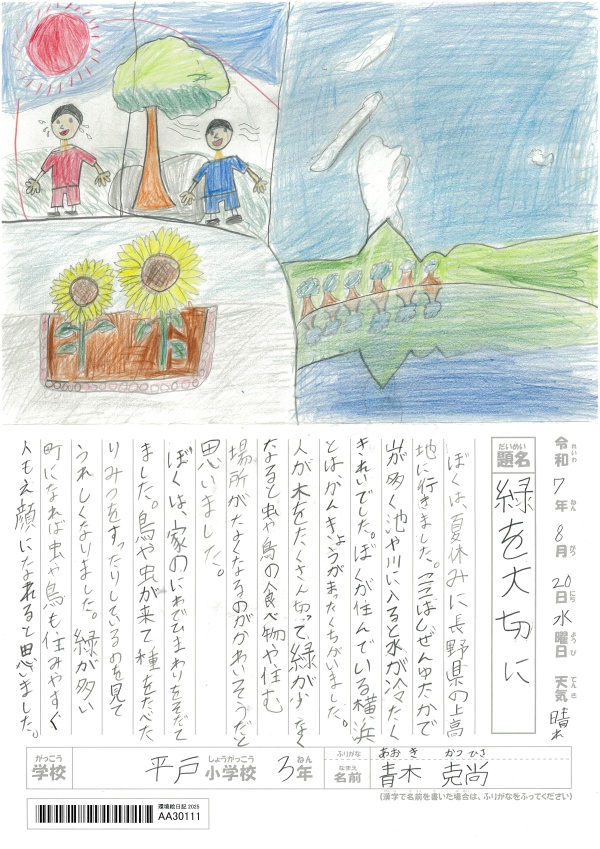 令和7年8月20日水曜日 天気 晴れ
れいわ ねん がつ にち ようび てんき
だいめい
題名 緑を大切に
ぼくは、夏休みに長野県の上高
地に行きました。ここはしぜんゆたかで
山が多く池や川に入ると水が冷たく
きれいでした。ぼくが住んでいる横浜
とはかんきょうがまったくちがいました。
人が木をたくさん切って緑が少なく
なると虫や鳥の食べ物や住む
場所がなくなるのがかわいそうだと
思いました。
ぼくは、家のにわでひまわりをそだて
ました。鳥や虫が来て種をたべた
りみつをすったりしているのを見て
うれしくなりました。緑が多い
町になれば虫や鳥も住みやすく
人もえ顔になれると思いました。
がっこう しょうがっこう ねん
学校 平戸小学校 3年
ふりがな あおき かつひさ
なまえ
名前 青木 克尚
(漢字で名前を書いた場合は、ふりがなをふってください)
環境絵日記 2025
AA30111